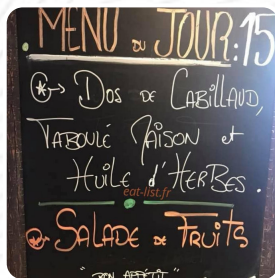 MENU DU JOUR : 15
Dos de Cabillaud,
Taboulé Maison et
Huile d'Herbes.
eat-list.fr
Salade de Fruits
"BON APPÉTIT"